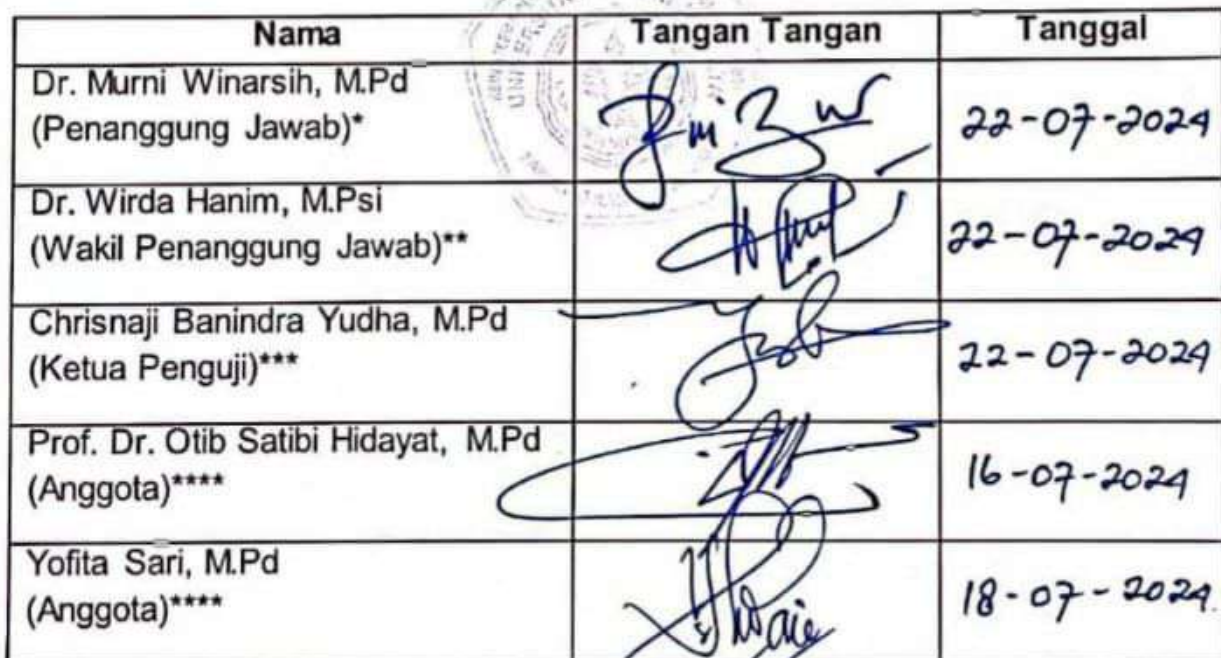 Nama Tangan Tangan Tanggal
Dr. Murni Winarsih, M.Pd
(Penanggung Jawab)* 22-07-2024
Dr. Wirda Hanim, M.Psi
(Wakil Penanggung Jawab)** 22-07-2024
Chrisnaji Banindra Yudha, M.Pd
(Ketua Penguji)*** 22-07-2024
Prof. Dr. Otib Satibi Hidayat, M.Pd
(Anggota)**** 16-07-2024
Yofita Sari, M.Pd
(Anggota)**** 18-07-2024